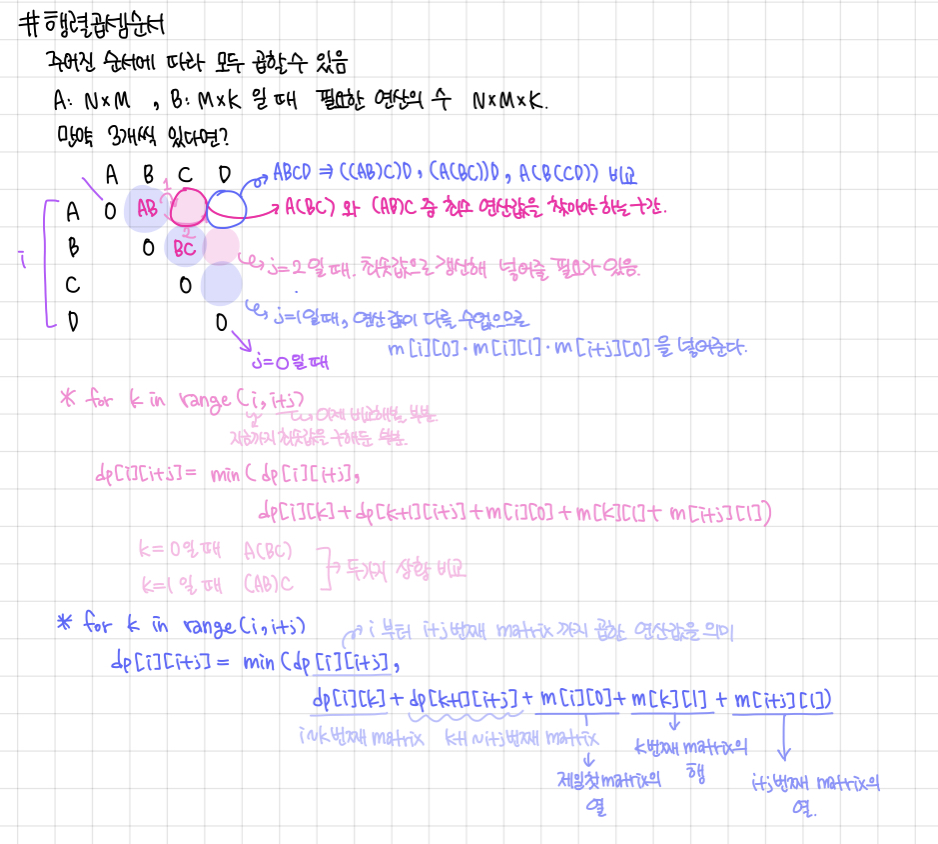 # 행렬곱셈순서
주어진 순서에 따라 모두 곱할 수 있음
A: N×M , B: M×K 일 때 필요한 연산의 수 N×M×K.
만약 3개씩 있다면?
A B C D
→ ABCD ⇒ ((AB)C)D, (A(BC))D, A(B(CD)) 비교
1
A 0 AB
→ A(BC) 와 (AB)C 중 최소 연산값을 찾아야 하는 구간.
2
B 0 BC
→ j=2 일 때. 최솟값으로 갱신해 넣어줄 필요가 있음.
i
C 0
→ j=1 일때, 연산 값이 다를 수 없으므로
D 0
m[i][0]·m[i][1]·m[i+j][0] 을 넣어준다.
j=0 일 때
* for k in range(i, i+j)
→ 이제 비교해볼 부분.
지금까지 최솟값을 구해둔 부분.
dp[i][i+j] = min( dp[i][i+j],
dp[i][k] + dp[k+1][i+j] + m[i][0] + m[k][1] + m[i+j][1])
k=0 일 때 A(BC)
k=1 일 때 (AB)C
→ 두가지 상황 비교
* for k in range(i, i+j)
→ i 부터 i+j 번째 matrix 까지 곱한 연산값을 의미
dp[i][i+j] = min(dp[i][i+j],
dp[i][k] + dp[k+1][i+j] + m[i][0] + m[k][1] + m[i+j][1])
i~k번째 matrix k+1~i+j번째 matrix
k번째 matrix의
행
제일첫 matrix의
열
i+j번째 matrix의
열.